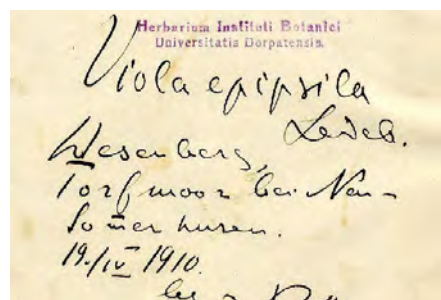 Herbarium Instituti Botanici
Universitatis Dorpatensis.
Viola epipsila
Ledeb.
Wesenberg,
Torfmoor bei Neu-
Somerhusen.
19./IV 1910.